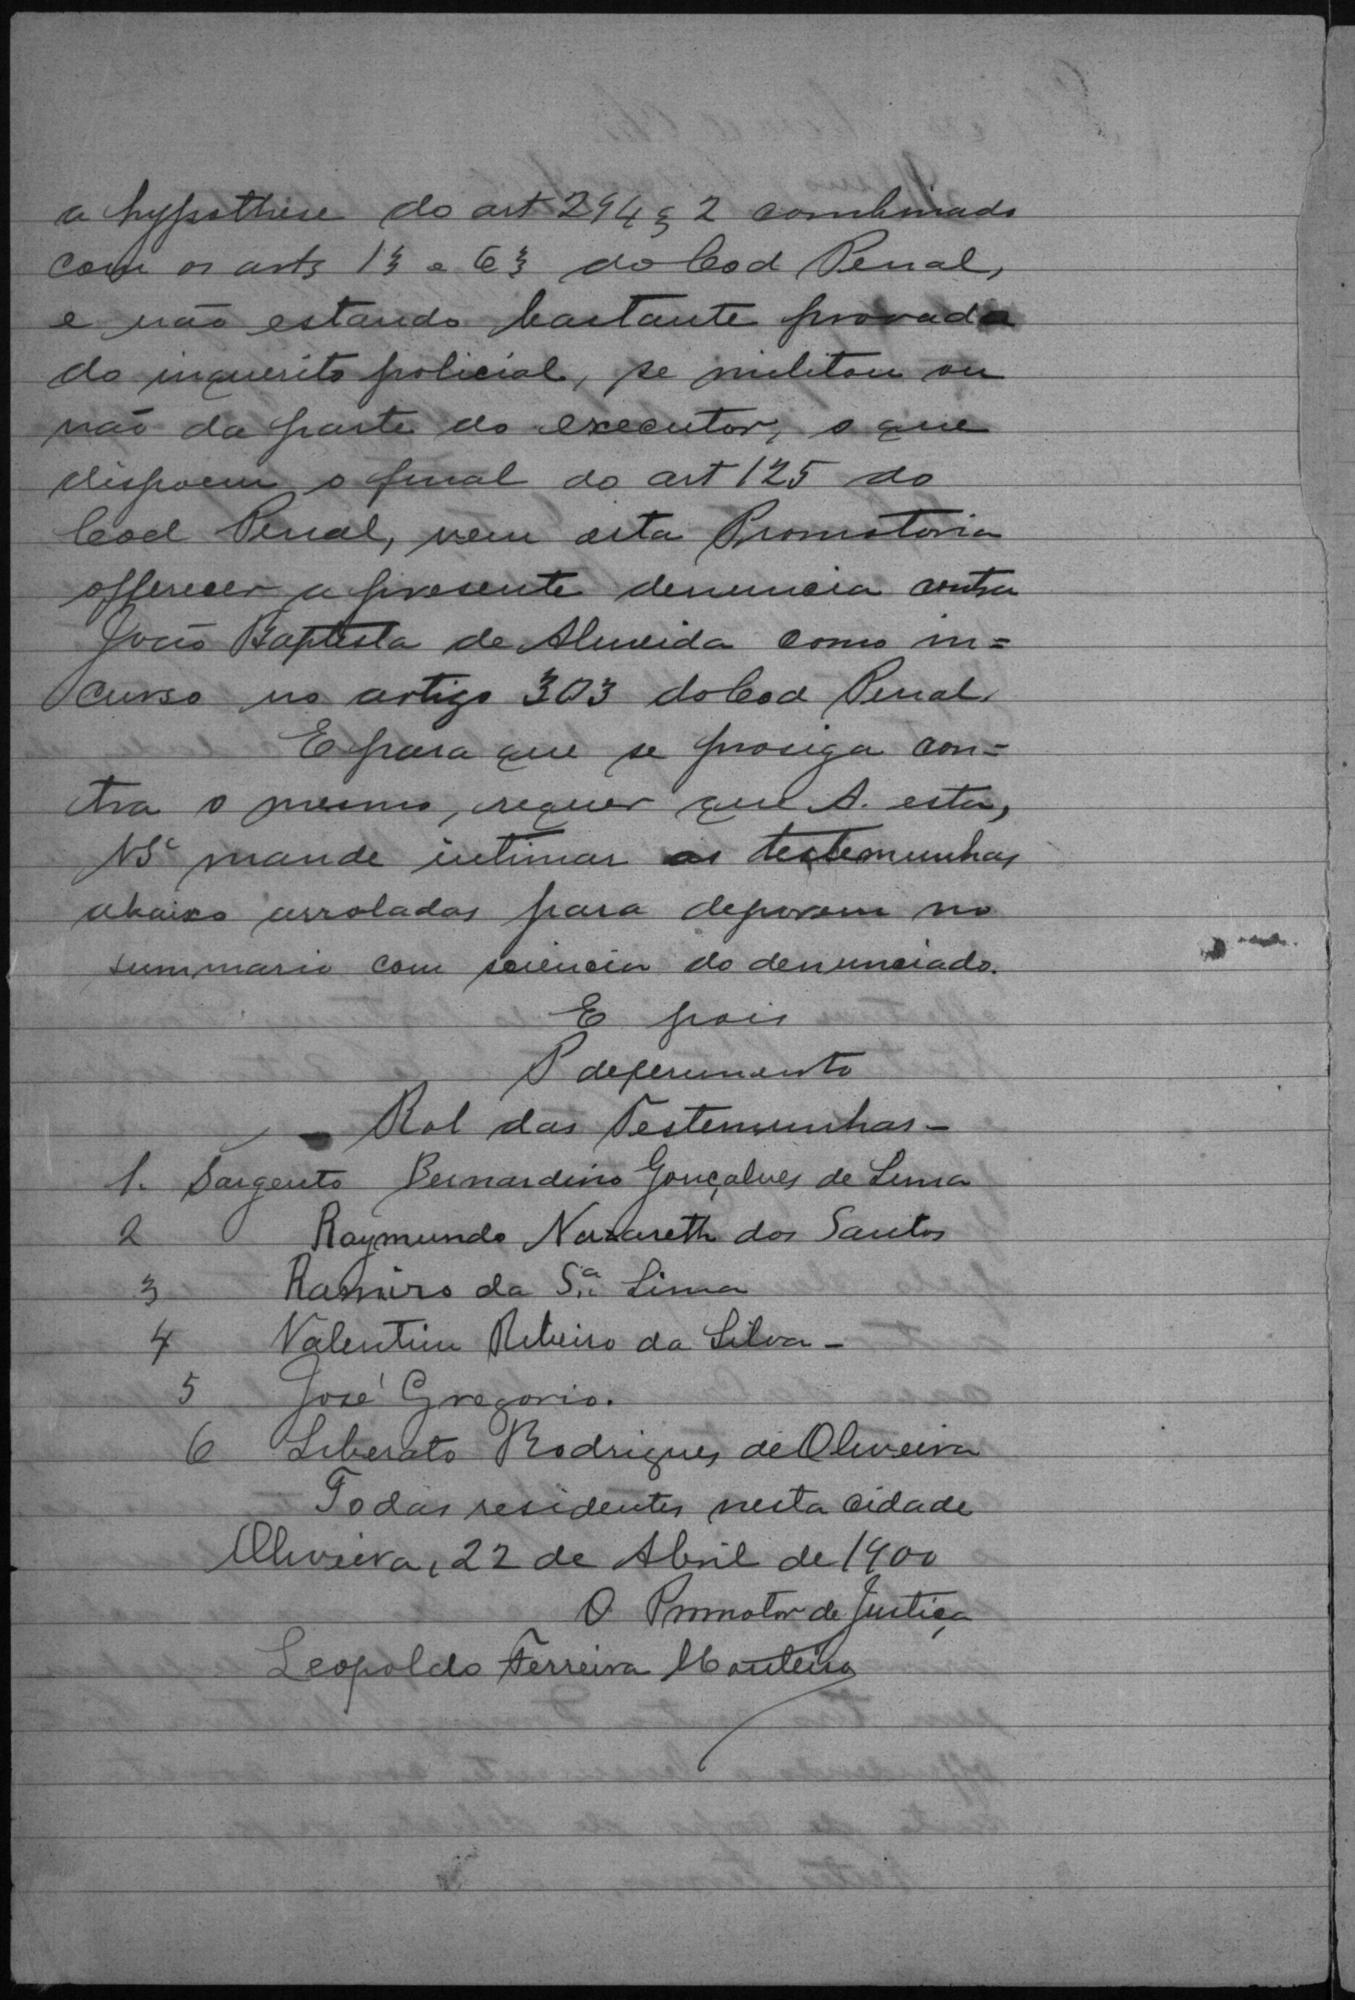 a hypothese do art 294 § 2 combinado
com os arts 13 e 63 do Cod Penal,
e não estando bastante provado
do inquerito policial, se militou ou
não da parte do executor, o que
dispoem o final do art 125 do
Cod Penal, vem esta Promotoria
offerecer a presente denuncia contra
João Baptista de Almeida como in=
curso no artigo 303 do Cod Penal.
E para que se prosiga con=
tra o mesmo, requer que A. esta,
VSª mande intimar as testemunhas
abaixo arroladas para deporem no
summario com sciencia do denunciado.
E pois
P deferimento
Rol das Testemunhas –
1. Sargento Bernardino Gonçalves de Lima
2 Raymundo Nazareth dos Santos
3 Ramiro da Sª Lima
4 Valentim Ribeiro da Silva –
5 José Gregorio.
6 Liberato Rodrigues de Oliveira
Todas residentes nesta cidade
Oliveira, 22 de Abril de 1900
O Promotor de Justiça
Leopoldo Ferreira Monteiro